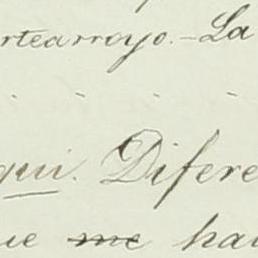 rtearroyo.-La
qui. Difere
ue me hai